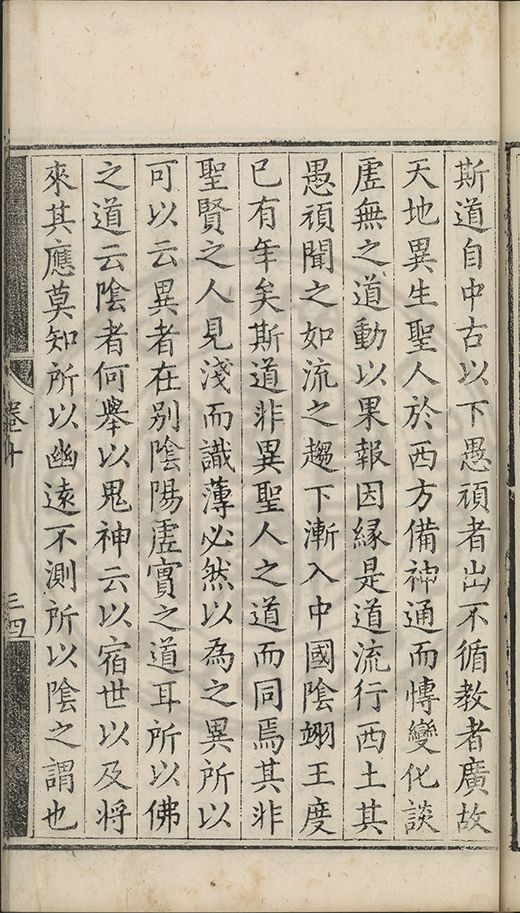 斯道自中古以下愚頑者出不循教者廣故
天地異生聖人於西方備神通而博變化談
虛無之道動以果報因緣是道流行西土其
愚頑聞之如流之趨下漸入中國陰翊王度
已有年矣斯道非異聖人之道而同焉其非
聖賢之人見淺而識薄必然以為之異所以
可以云異者在別陰陽虛實之道耳所以佛
之道云陰者何舉以鬼神云以宿世以及將
來其應莫知所以幽遠不測所以陰之謂也
卷十
三四